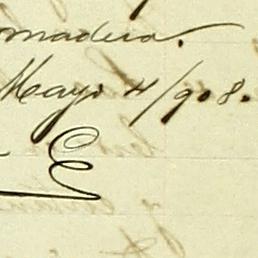 madera.
Mayo 4/908.
E